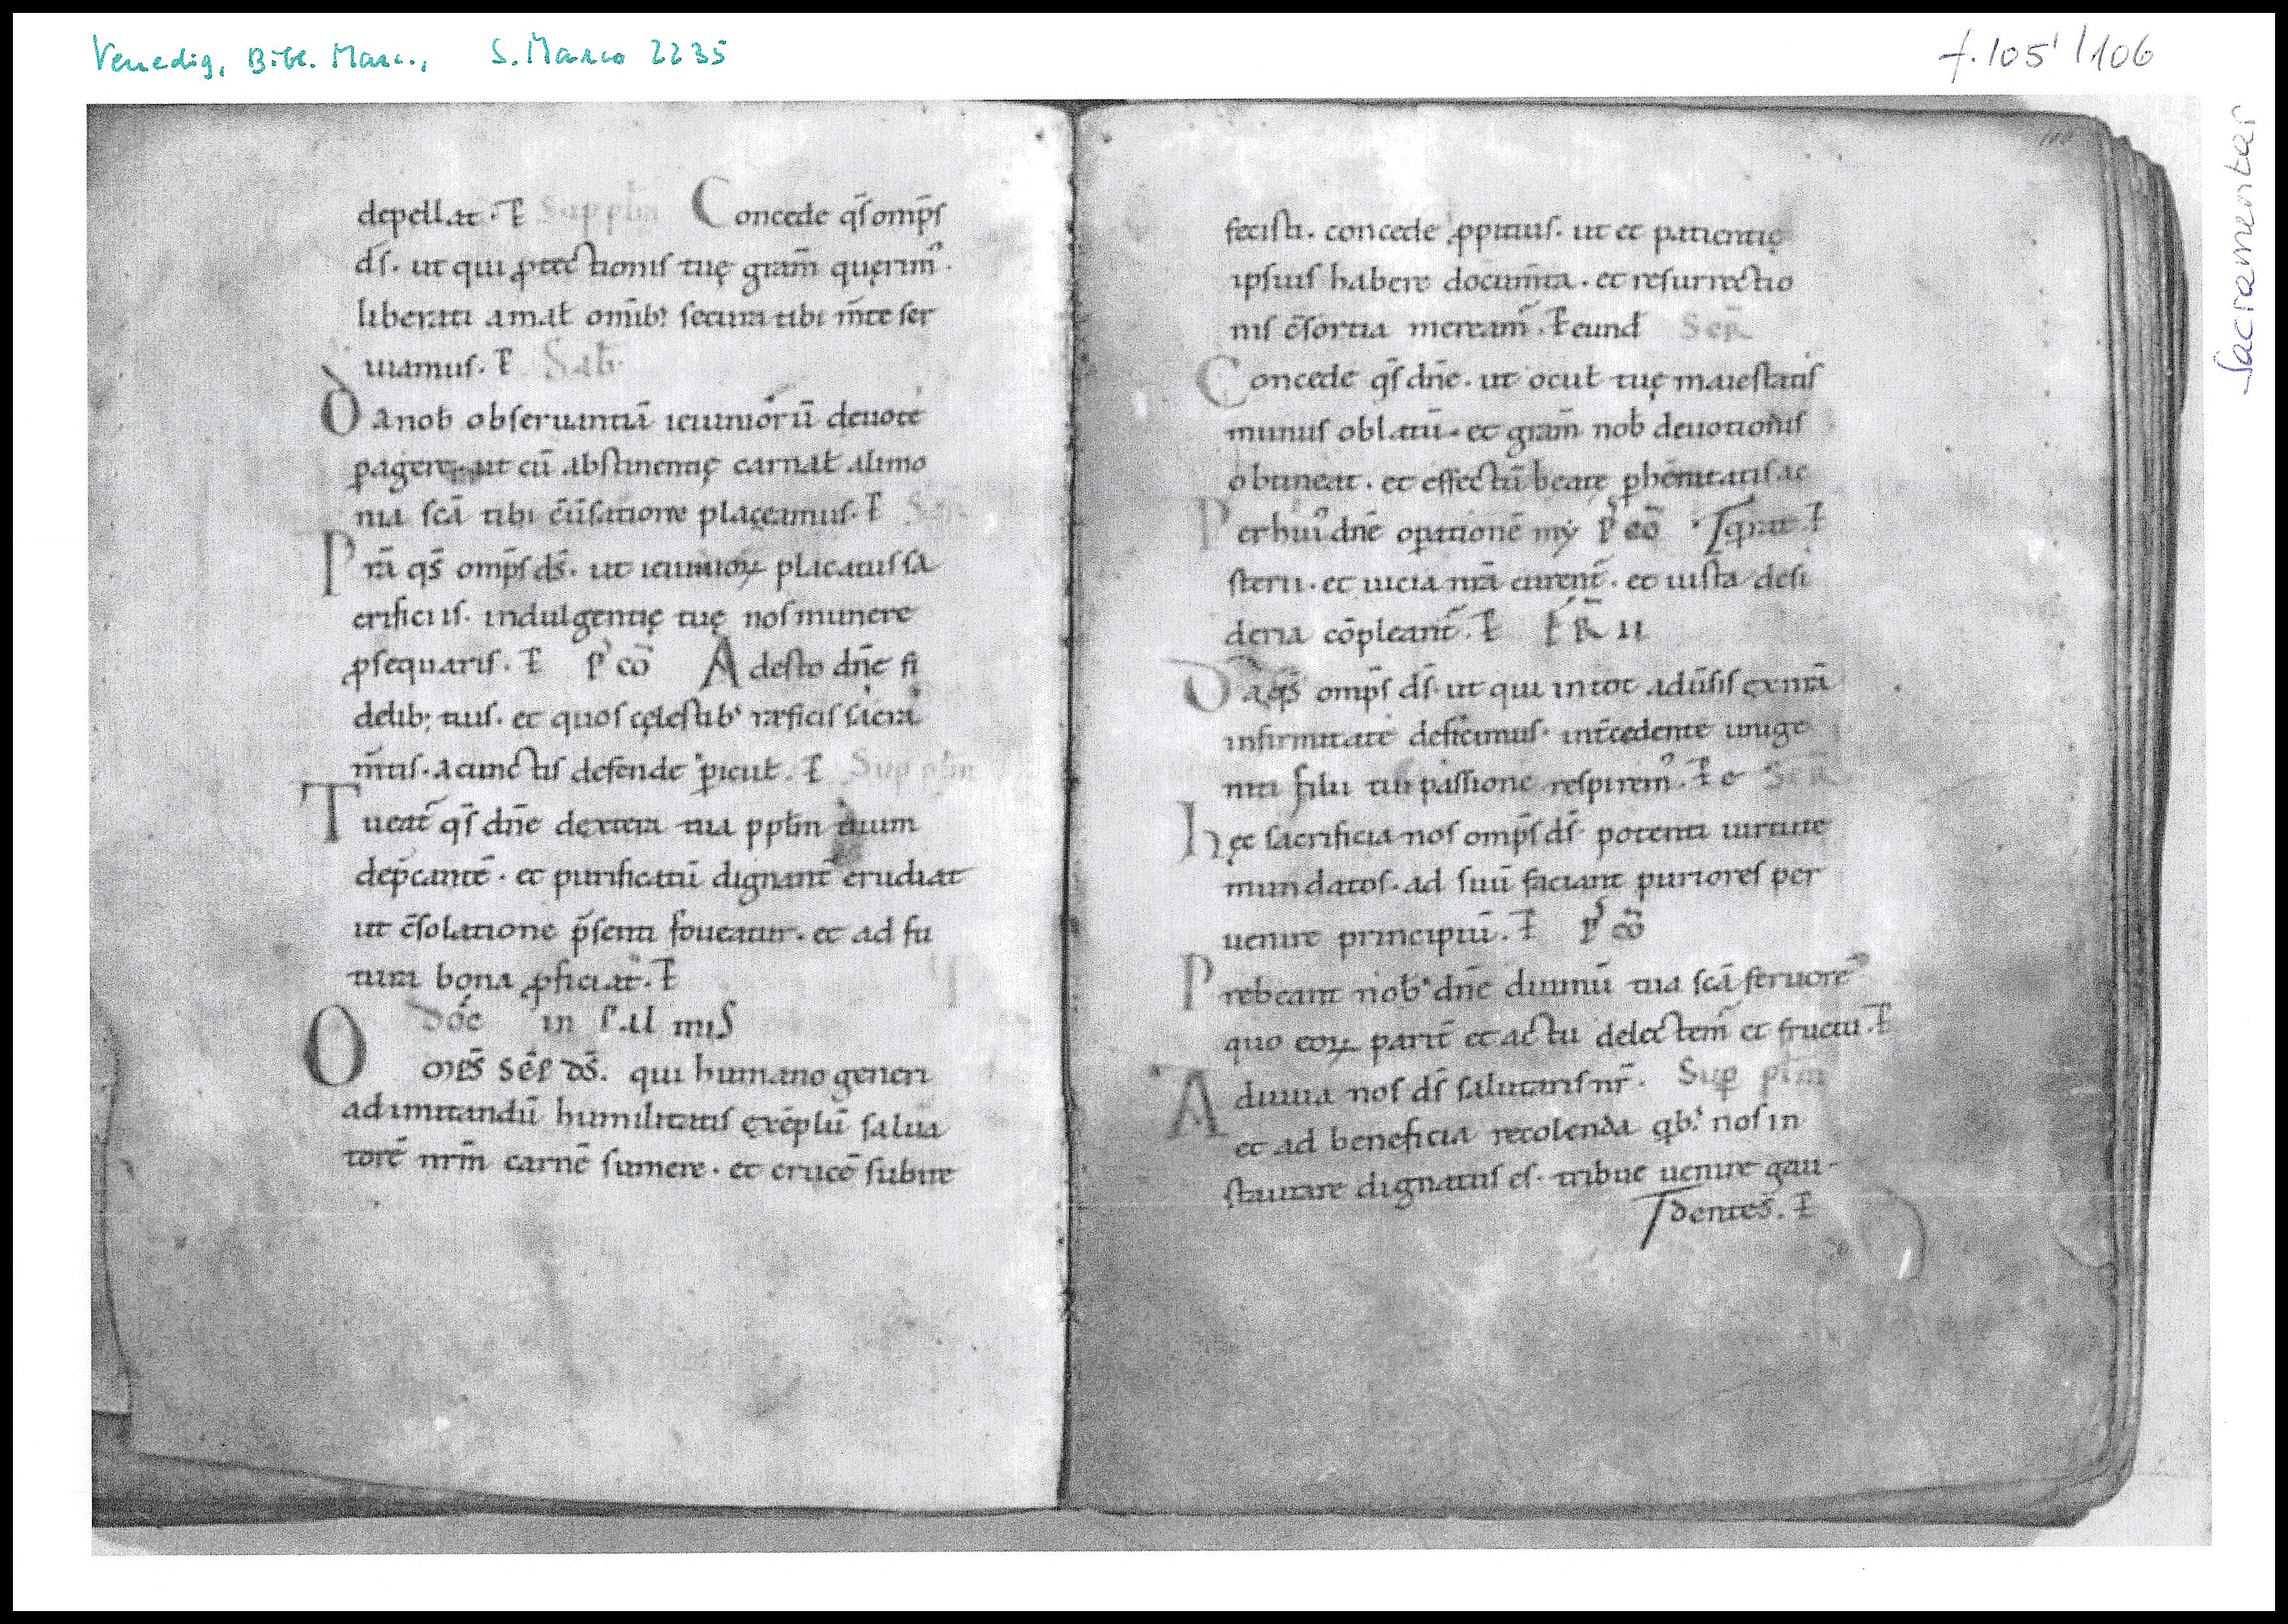 Venedig, Bibl. Marc., S. Marco 2235
f. 105' / 106
Sacramentar
depellat. P̄ Sup pl̄m Concede q̄s omp̄s
d̄s. ut qui ꝓtectionis tuę grām querim᾽.
liberati a mal̄ omīb; secura tibi m̄te ser
uiamus. P̄ Sab̄
Da nob̄ obseruantiā ieiuniorū deuote
ꝑagere ut cū abstinentię carnal̄ alimo
nia scā tibi c̄ūsatione placeamus. P̄
Prā q̄s omp̄s d̄s. ut ieiunioꝝ placatus sa
crificiis. indulgentię tuę nos munere
ꝓsequaris. P̄ P᾽ cō Adesto dn̄e fi
delib; tuis. et quos cęlestib᾽ reficis sacra
m̄tis. a cunctis defende ꝑicul̄. P̄ Sup pl̄m
Tueat᷑ q̄s dn̄e dextera tua ppl̄m tuum
dep̄cantē. et purificatū dignant᷑ erudiat
ut c̄solatione p̄senti foueatur. et ad fu
tura bona ꝓficiat. P̄
in PALmiS
Omp̄s Sēp DS̄. qui humano generi
ad imitandū humilitatis exēplū salua
torē nrm̄ carnē sumere. et crucē subire
fecisti. concede ꝓpitius. ut et patientię
ipsius habere docum̄ta. et resurrectio
nis c̄sortia meream᷑. P̄ eund Sec̄R
Concede q̄s dn̄e. ut ocul̄ tuę maiestatis
munus oblatū. et grām nob̄ deuotionis
obtineat. et effectū beate ꝑhennitatis ac
Per hui᾽ dn̄e oꝑationē my P᾽ cō qrat. P̄
sterii. et uicia nr̄a curent᷑. et iusta desi
deria cōpleant᷑. P̄ FR̄ II
Da q̄s omp̄s d̄s. ut qui in tot adūsis ex nr̄a
infirmitate deficimus. int᷑cedente unige
niti filii tui passione respirem᾽. P̄ e Sec̄R
hęc sacrificia nos omp̄s d̄s. potenti uirtute
mundatos. ad suū faciant puriores per
uenire principiū. P̄ P᾽ cō
Prebeant nob᾽ dn̄e diuinū tua scā feruorē
quo eoꝝ parit᷑ et actu delectem᷑ et fructu. P̄
Adiuua nos d̄s salutaris nr̄. Sup plm̄
et ad beneficia recolenda qb᾽ nos in
staurare dignatus es. tribue uenire gau-
dentes. P̄